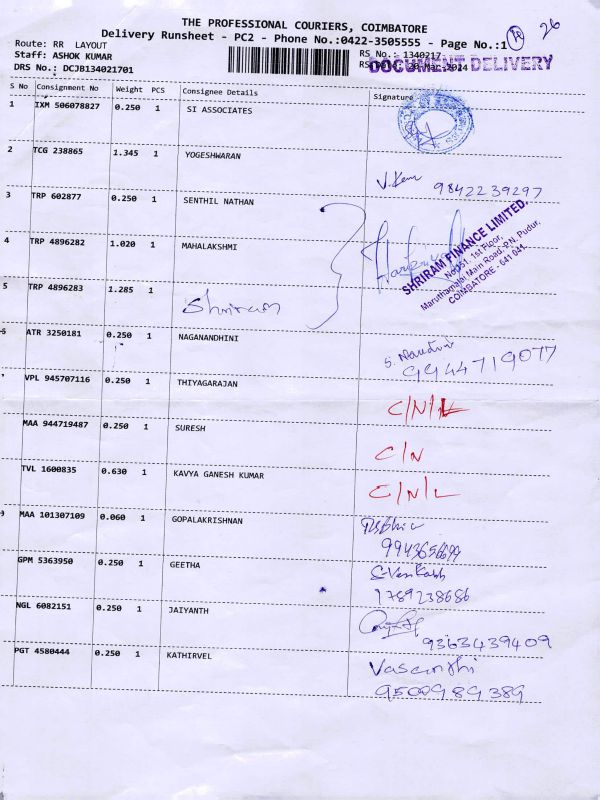 THE PROFESSIONAL COURIERS, COIMBATORE
26
Delivery Runsheet - PC2 - Phone No.:0422-3505555 - Page No.:1
Route: RR LAYOUT
RS No.: 1340217
Staff: ASHOK KUMAR
20 Mar 2024
DOCUMENT DELIVERY
DRS No.: DCJB134021701
S No Consignment No Weight PCS Consignee Details Signature
1 IXM 506078827 0.250 1 SI ASSOCIATES
2 TCG 238865 1.345 1 YOGESHWARAN
9842239297
3 TRP 602877 0.250 1 SENTHIL NATHAN
4 TRP 4896282 1.020 1 MAHALAKSHMI
SHRIRAM FINANCE LIMITED.
1st Floor,
Maruthamalai Main Road, P.N. Pudur,
COIMBATORE - 641 041.
5 TRP 4896283 1.285 1
Shriram
6 ATR 3250181 0.250 1 NAGANANDHINI
9944719077
VPL 945707116 0.250 1 THIYAGARAJAN C/N/L
MAA 944719487 0.250 1 SURESH C/N
TVL 1600835 0.630 1 KAVYA GANESH KUMAR C/N/L
MAA 101307109 0.060 1 GOPALAKRISHNAN
GPM 5363950 0.250 1 GEETHA
1789238686
NGL 6082151 0.250 1 JAIYANTH
9363439409
PGT 4580444 0.250 1 KATHIRVEL Vasanthi
9500989389